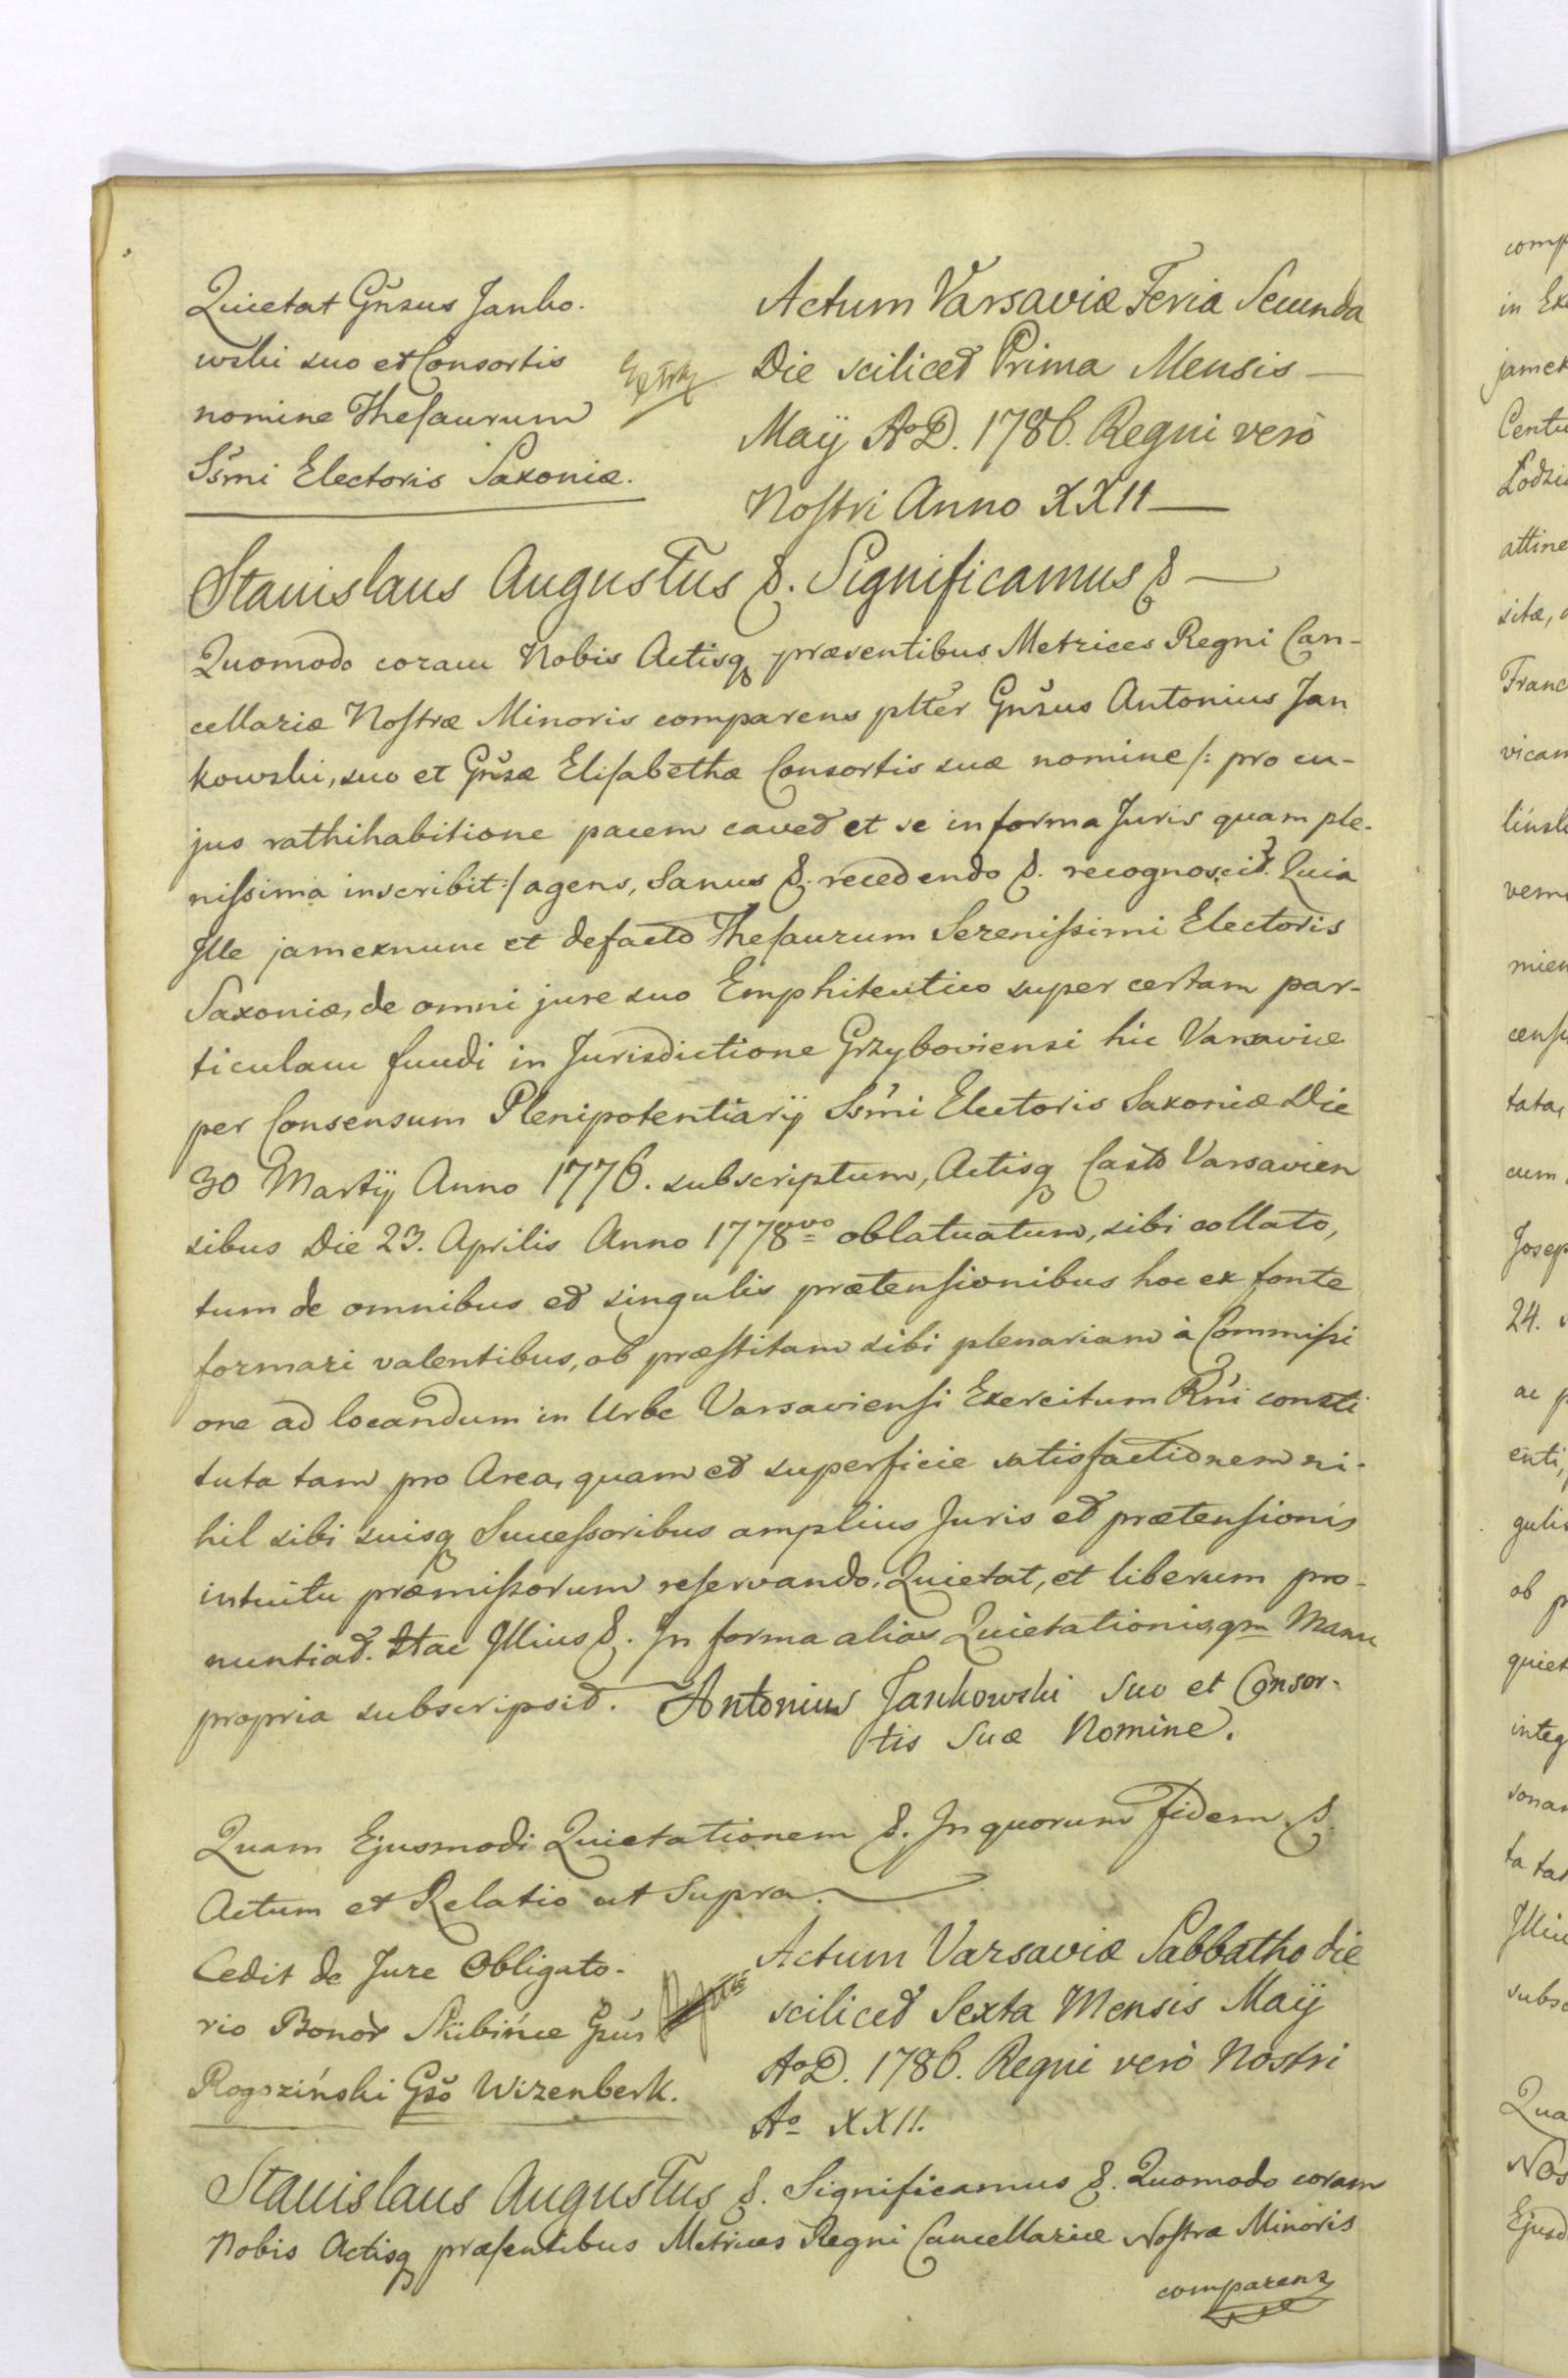 Quietat Gnsus Janko-
wski suo et Consortis
nomine Thesaurum
Ssmi Electoris Saxoniæ.
Extr
Actum Varsaviæ Feria Secunda
Die scilicet Prima Mensis —
Maÿ Ao D. 1786. Regni verò
Nostri Anno XXII —
Stanislaus Augustus &. Significamus & —
Quomodo coram Nobis Actisq præsentibus Metrices Regni Can-
cellariæ Nostræ Minoris comparens plter Gnsus Antonius Jan
kowski, suo et Gnsæ Elisabethæ Consortis suæ nomine /: pro cu-
jus rathihabitione pacem cavet et se in forma Juris quam ple-
nissima inscribit :/ agens, Sanus &. recedendo &. recognoscit. Quia
Ille jamexnunc et defacto Thesaurum Serenissimi Electoris
Saxoniæ, de omni jure suo Emphiteutico super certam par-
ticulam fundi in Jurisdictione Grzyboviensi hic Varsaviæ
per Consensum Plenipotentiarÿ Ssmi Electoris Saxoniæ Die
30 Martÿ Anno 1776. subscriptum, Actisq Casto Varsavien
sibus Die 23. Aprilis Anno 1778vo oblatuatum, sibi collato,
tum de omnibus et singulis prætensionibus hoc ex fonte
formari valentibus, ob præstitam sibi plenariam à Commissi
one ad locandum in Urbe Varsaviensi Exercitum Rni consti
tuta tam pro Area, quam et superficie satisfactionem ni-
hil sibi suisq Successoribus amplius Juris et prætensionis
intuitu præmissorum reservando. Quietat, et liberum pro-
nuntiat. Stac Illius &. In forma alias Quietationis, qm Manu
propria subscripsit. Antonius Jankowski Suo et Consor-
tis Suæ Nomine.
Quam Ejusmodi Quietationem &. In quorum fidem &
Actum et Relatio ut Supra.
Cedit de Jure Obligato-
rio Bonor Skübińce Gnus
Rogoziński Gso Wizenberk.
Actum Varsaviæ Sabbatho die
scilicet Sexta Mensis Maÿ
Ao D. 1786. Regni verò Nostri
Ao XXII.
Stanislaus Augustus &. Significamus &. Quomodo coram
Nobis Actisq præsentibus Metrices Regni Cancellariæ Nostræ Minoris
comparens
in
Centu
Lodzi
attine
sitæ,
Franc
vicam
tata,
cum
Josep
24.
ac
ob
quiet
integ
sonan
ta tam
Illiu
subsc
Qua
Nos
Ejusd